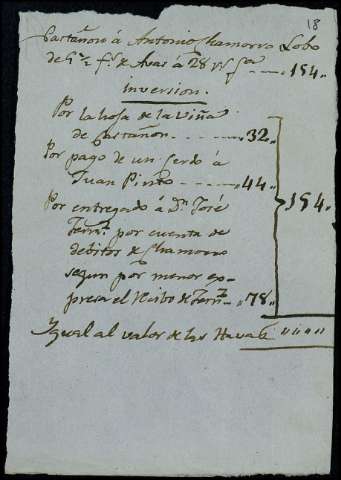 18
á Antonio Chamorro Lobo
de Avas á 28 154
inversion.
Por la hoja de la viña
de Castañon. 32,,
Por pago de un Cerdo á
Juan Pinto 44,,
Por entregado á Dn José 154,,
Fernz por cuenta de
debitos de Chamorro
segun por menor ex-
presa el Recibo de Fernz 78,,
Igual al valor de las Havas ,, ,, ,, ,,